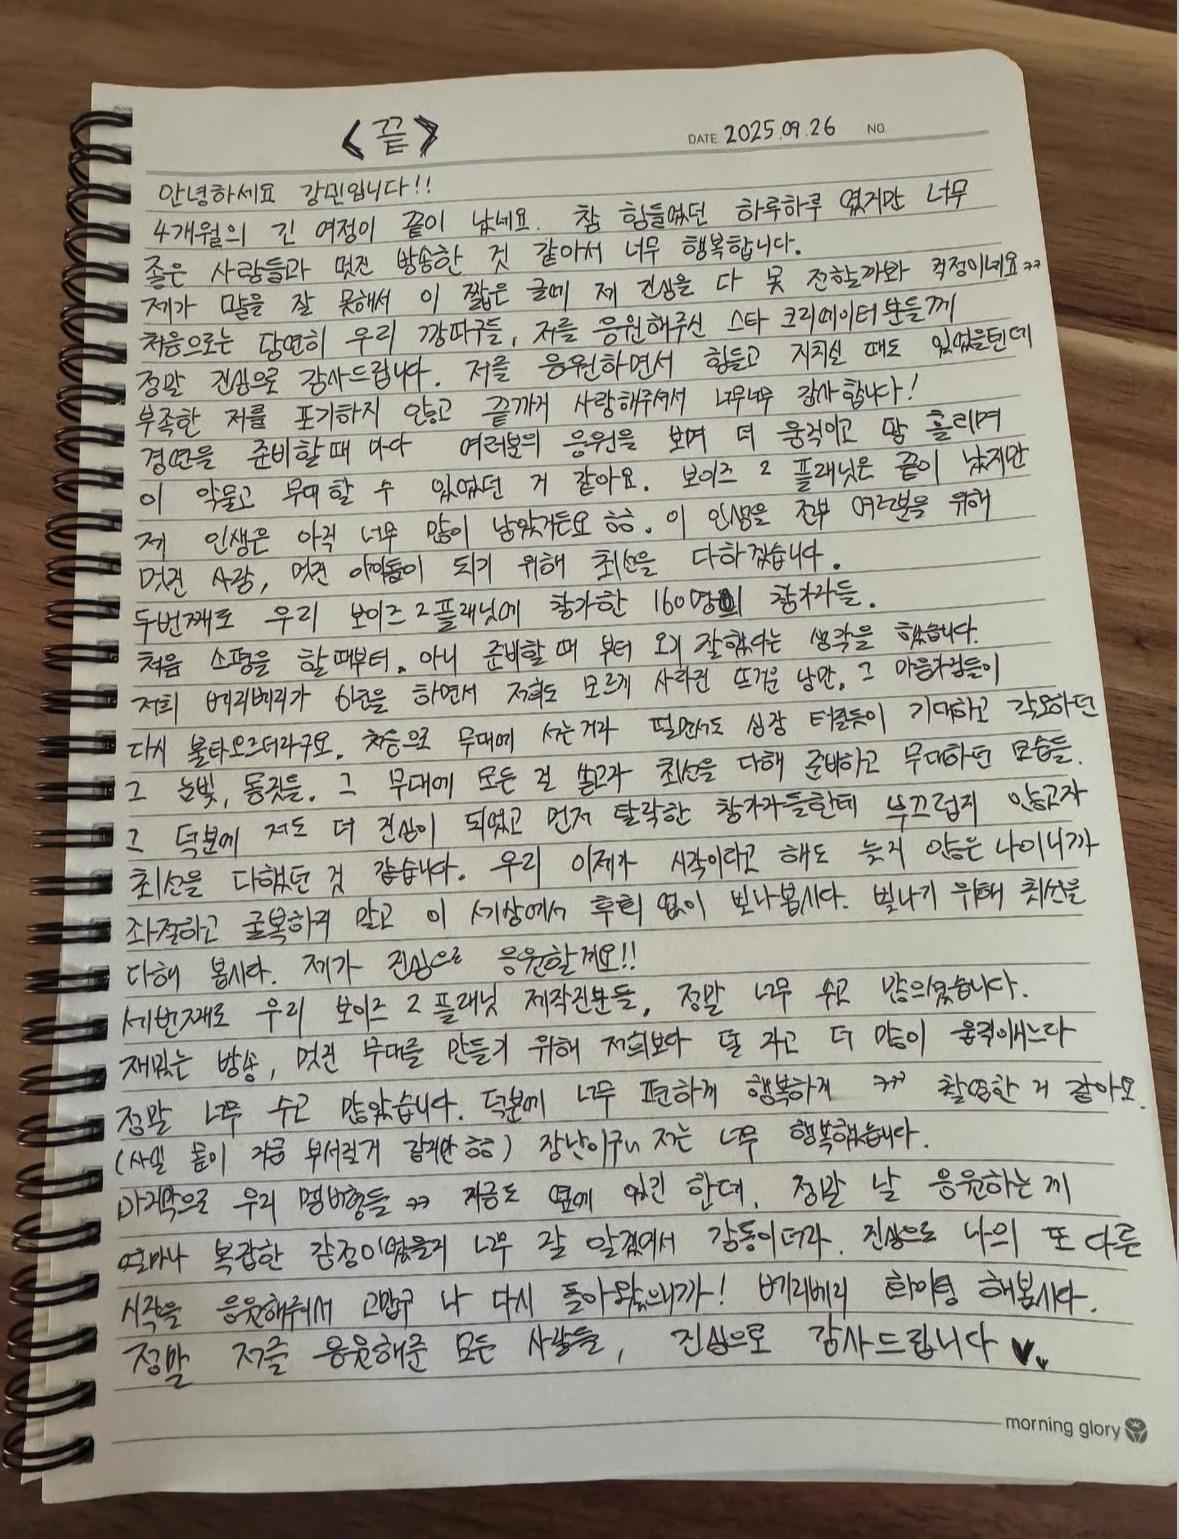 <끝>
DATE 2025.09.26 NO
안녕하세요 강민입니다!!
4개월의 긴 여정이 끝이 났네요. 참 힘들었던 하루하루 였지만 너무
좋은 사람들과 멋진 방송한 것 같아서 너무 행복합니다.
제가 말을 잘 못해서 이 짧은 글에 제 진심을 다 못 전할까봐 걱정이네요ㅋㅋ
처음으로는 당연히 우리 깡파구들, 저를 응원해주신 스타 크리에이터분들께
정말 진심으로 감사드립니다. 저를 응원하면서 힘들고 지치신 때도 있었을텐데
부족한 저를 포기하지 않고 끝까지 사랑해주셔서 너무너무 감사합니다!
경연을 준비할때 마다 여러분의 응원을 보며 더 움직이고 땀 흘리며
이 악물고 무대할 수 있었던 거 같아요. 보이즈 2 플래닛은 끝이 났지만
제 인생은 아직 너무 많이 남았거든요 ㅎㅎ. 이 인생을 전부 여러분을 위해
멋진 사람, 멋진 아이돌이 되기 위해 최선을 다하겠습니다.
두번째로 우리 보이즈 2 플래닛에 참가한 160명의 참가자들.
처음 소평을 할때부터. 아니 준비할 때 부터 오기 잘했다는 생각을 했습니다.
저희 베리베리가 6년을 하면서 저희도 모르게 사라진 뜨거운 낭만, 그 마음가짐들이
다시 불타오르더라구요. 처음으로 무대에 서는거라 떨면서도 심장 터질듯이 기대하고 각오하던
그 눈빛, 몸짓들. 그 무대에 모든 걸 쏟고자 최선을 다해 준비하고 무대하던 모습들.
그 덕분에 저도 더 진심이 되었고 먼저 탈락한 참가자들한테 부끄럽지 않고자
최선을 다했던 것 같습니다. 우리 이제가 시작이라고 해도 늦지 않은 나이니까
좌절하고 굴복하지 말고 이 세상에서 후회 없이 빛나봅시다. 빛나기 위해 최선을
다해 봅시다. 제가 진심으로 응원할게요!!
세번째로 우리 보이즈 2 플래닛 제작진분들, 정말 너무 수고 많으셨습니다.
재밌는 방송, 멋진 무대를 만들기 위해 저희보다 덜 자고 더 많이 움직이시느라
정말 너무 수고 많았습니다. 덕분에 너무 편하게 행복하게 ㅋㅋ 촬영한 거 같아요.
(사실 몸이 지금 부서질거 같지만 ㅎㅎ) 장난이구 저는 너무 행복했습니다.
마지막으로 우리 멤버형들 ㅋㅋ 지금도 옆에 있긴 한데, 정말 날 응원하는게
얼마나 복잡한 감정이었을지 너무 잘 알겠어서 감동이더라. 진심으로 나의 또 다른
시작을 응원해줘서 고맙구 나 다시 돌아왔으니까! 베리베리 화이팅 해봅시다.
정말 저를 응원해준 모든 사람들, 진심으로 감사드립니다 ♥♥
morning glory